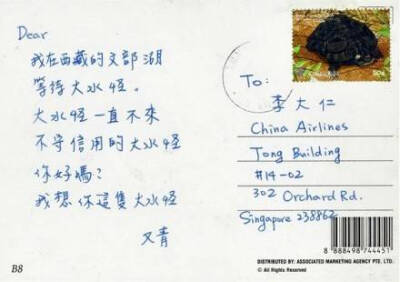 Dear
我在西藏的文部湖
等待大水怪。
大水怪一直不來
不守信用的大水怪
你好嗎?
我想你這隻大水怪
又青
B8
To:
李大仁
China Airlines
Tong Building
#14-02
302 Orchard Rd.
Singapore 238862
8 888498 744451
DISTRIBUTED BY: ASSOCIATED MARKETING AGENCY PTE. LTD.
© All Rights Reserved